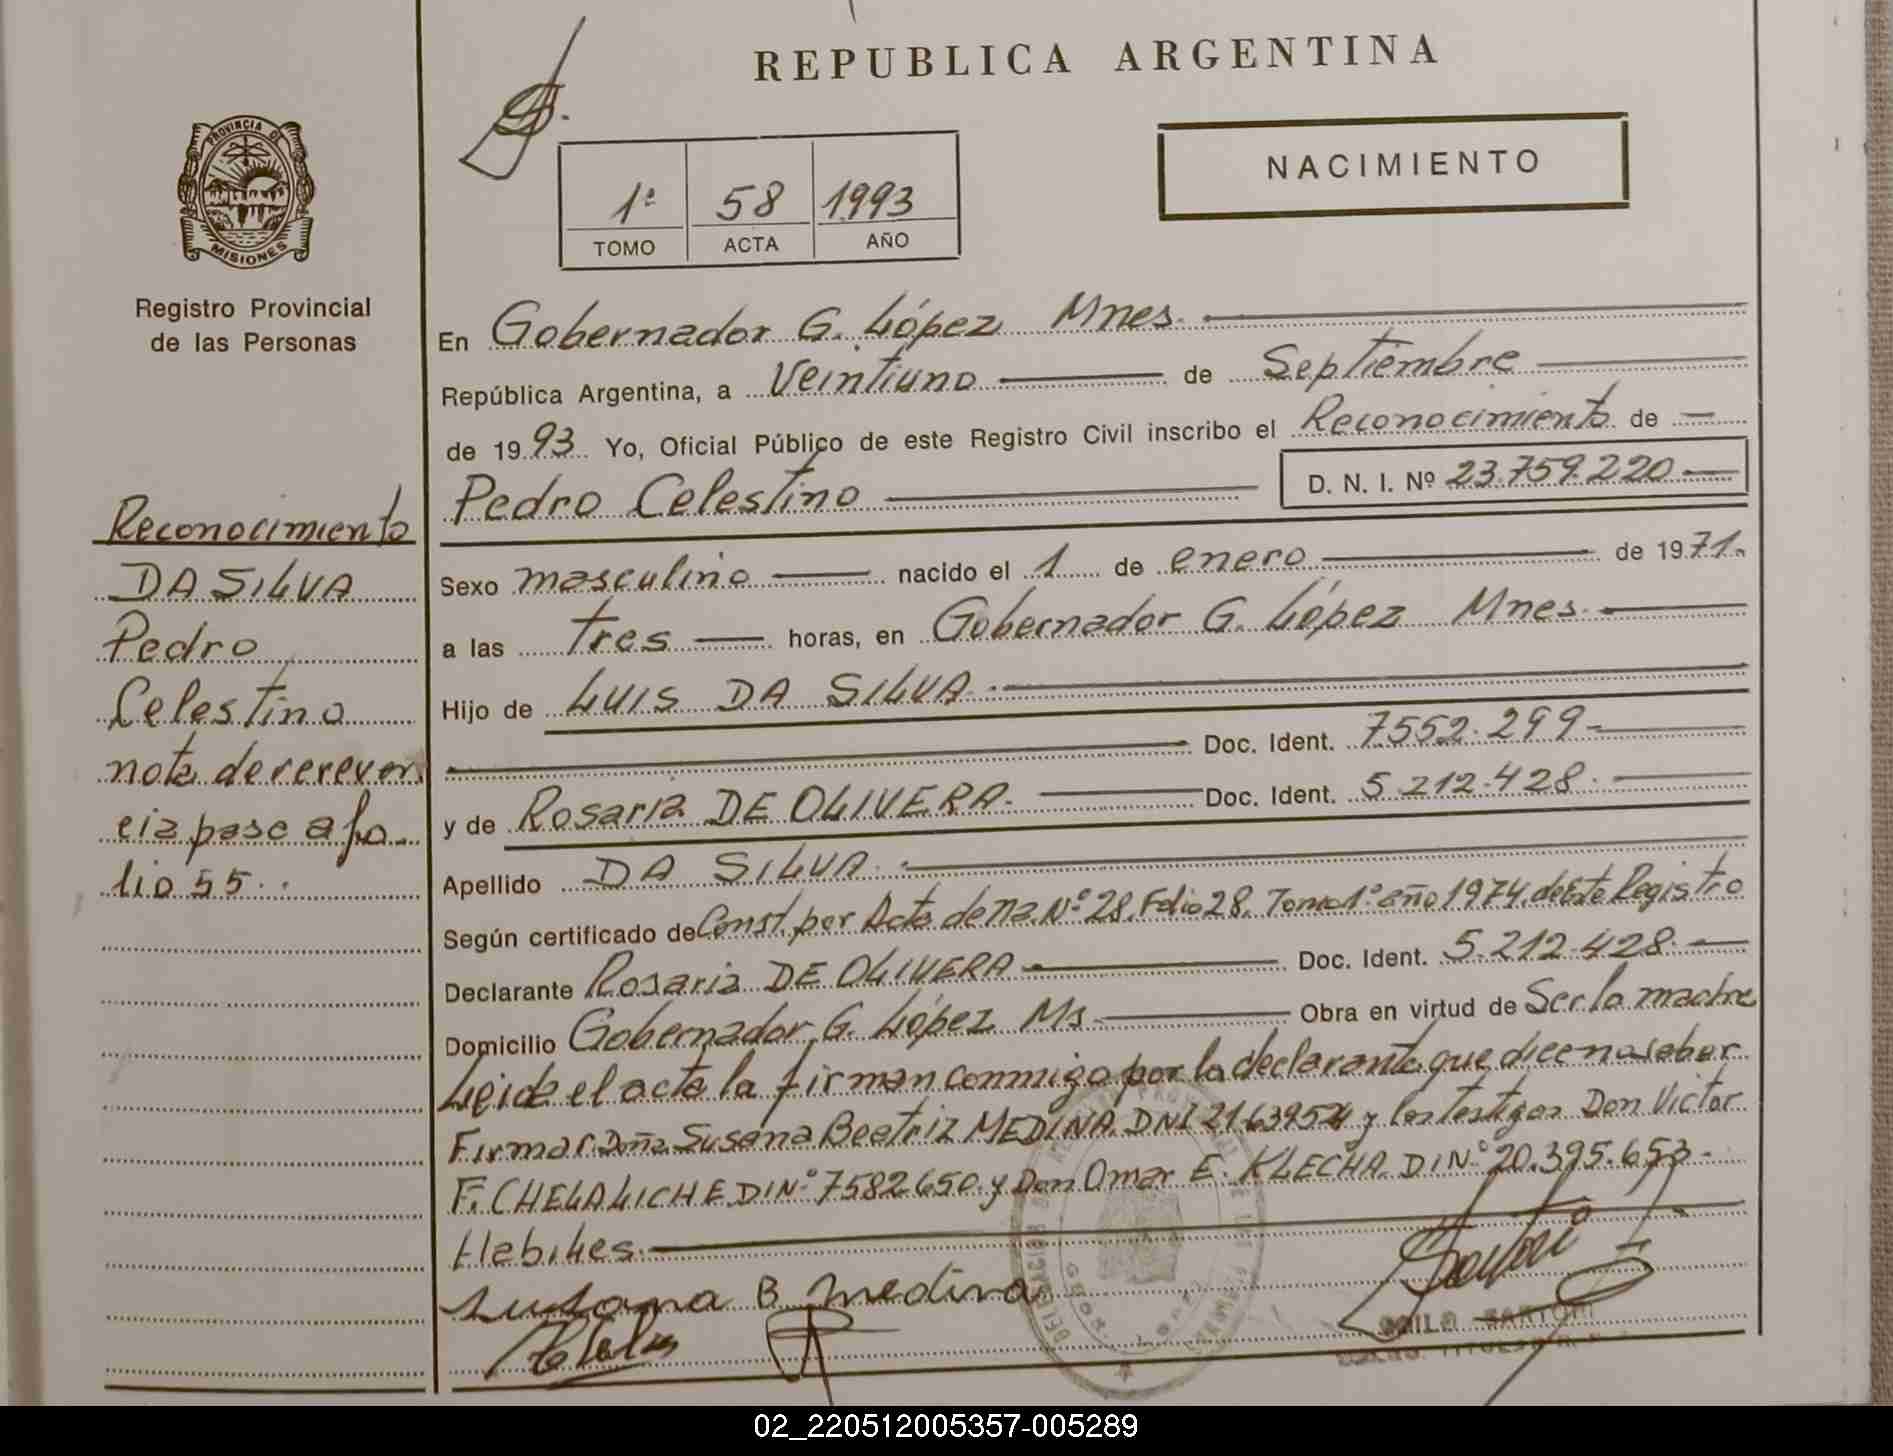 REPUBLICA ARGENTINA
PROVINCIA DE
MISIONES
Registro Provincial
de las Personas
NACIMIENTO
1º 58 1993
TOMO ACTA AÑO
Reconocimiento
DA SILVA
Pedro
Celestino
nota de referen
cia pase a fo
lio 55..
En Gobernador G. López Mnes.
República Argentina, a Veintiuno de Septiembre
de 1993 Yo, Oficial Público de este Registro Civil inscribo el Reconocimiento de
Pedro Celestino D. N. I. Nº 23.759.220
Sexo masculino nacido el 1 de enero de 1971.
a las tres horas, en Gobernador G. López Mnes.
Hijo de LUIS DA SILVA.
Doc. Ident. 7552.299
y de Rosaria DE OLIVERA. Doc. Ident. 5.212.428.
Apellido DA SILVA.
Según certificado de Const. por Acta de na. Nº 28. Folio 28. Tomo 1º año 1974. de Este Registro
Declarante Rosaria DE OLIVERA Doc. Ident. 5.212.428.
Domicilio Gobernador G. López Ms. Obra en virtud de Ser la madre
Leida el acta la firman conmigo por la declarante que dice no saber
Firmar Doña Susana Beatriz MEDINA. DNI y los testigos Don Victor
F. CHELALICHE DIN.º 7582650 y Don Omar E. KLECHA. DIN.º 20.395.653.
Habiles.
Susana B Medina
SARTORI
02_220512005357-005289